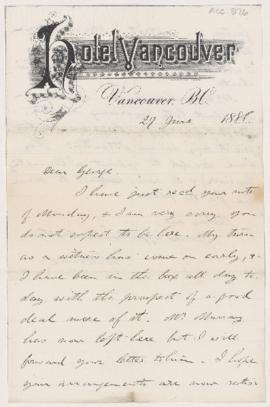 Acc. 826
Hotel Vancouver
Vancouver, B.C.
27 June 188
Dear George.
I have just recd your note
of Monday, & I am very sorry you
do not expect to be here. My turn
as a witness has come on early, &
I have been in the box all day to
day with the prospect of a good
deal more of it. Mr Murray
has now left here but I will
forward your letter to him. I hope
your arrangements are now